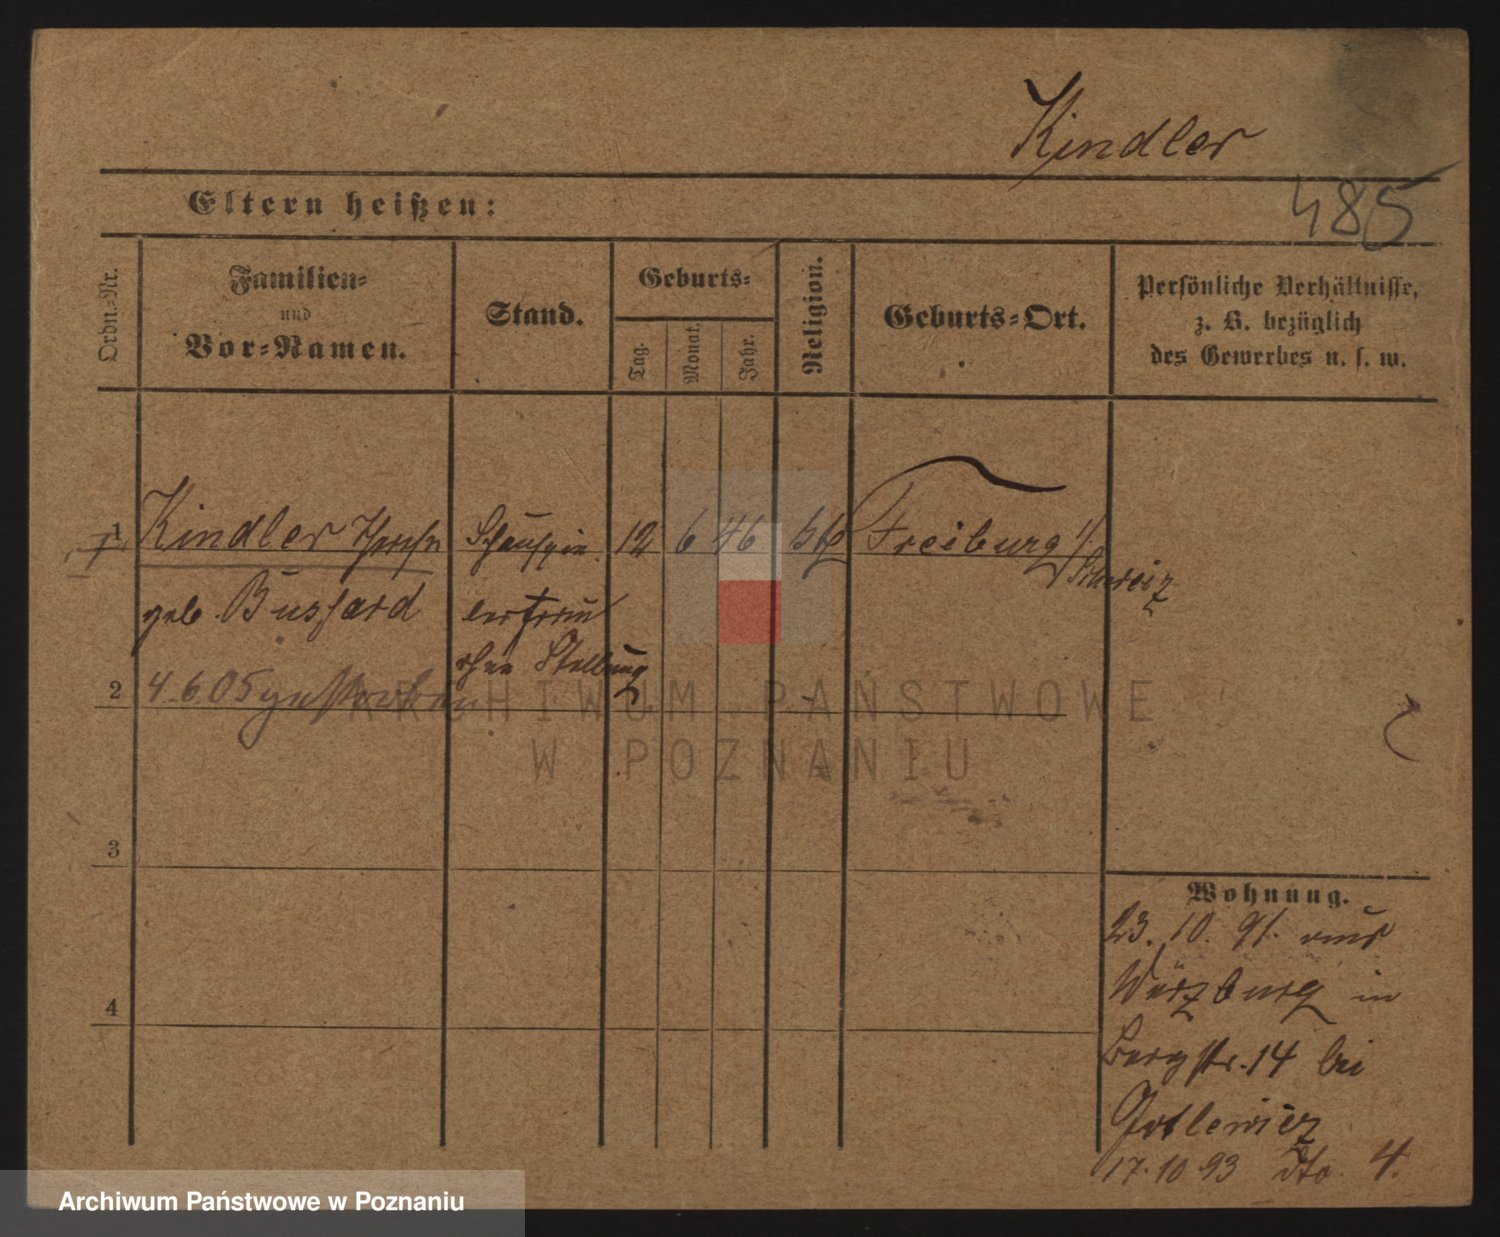 Kindler
485
Eltern heißen:
Ordn.-Nr.
Familien-
und
Vor-Namen.
Stand.
Geburts-
Tag.
Monat.
Jahr.
Religion.
Geburts-Ort.
Persönliche Verhältnisse,
z. B. bezüglich
des Gewerbes u. s. w.
1 Kindler Schauspie 12 6 46 Freiburg i/
Schweiz
geb. Bussard lerfrau
ohne Stellung
2 4.6.05 gestorben
3
4
Wohnung.
23. 10. 91. aus
Würzburg in
Bergstr. 14 bei
17.10 93 dto 4.
ARCHIWUM PAŃSTWOWE
W POZNANIU
Archiwum Państwowe w Poznaniu